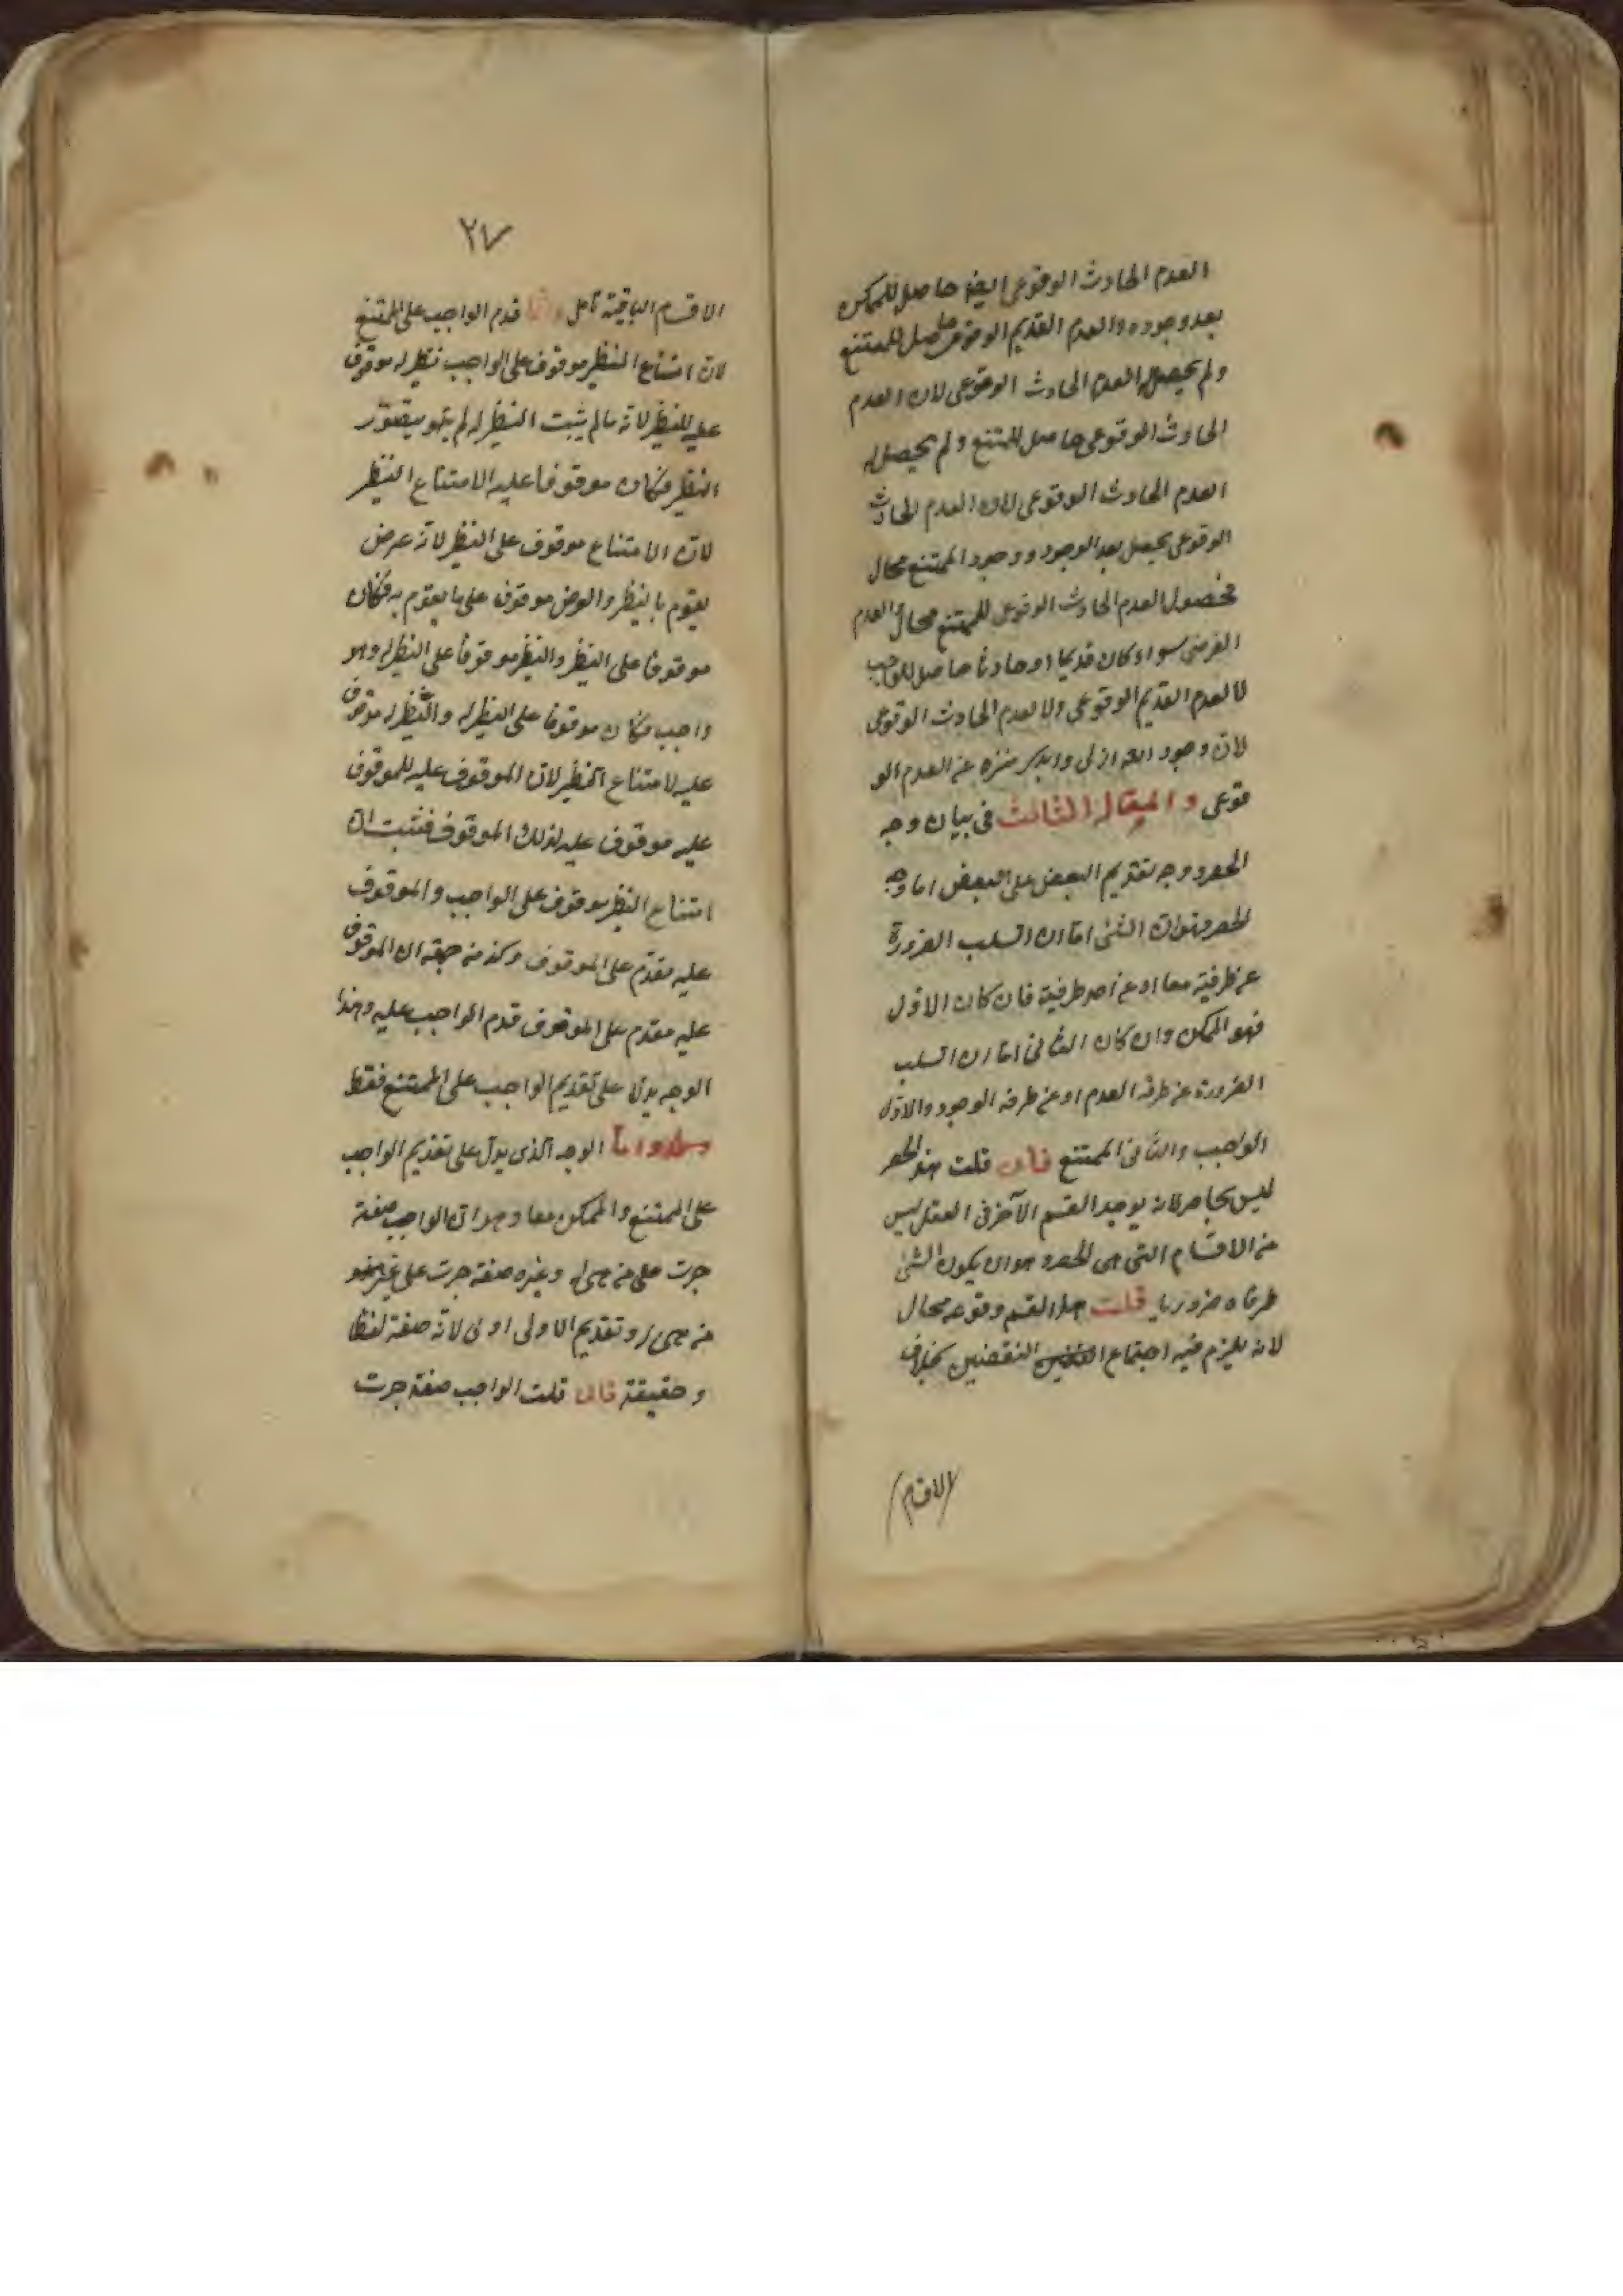 العدم الحادث الوقوعى ايضا حاصل للممكن
بعد وجوده والعدم القديم الوقوعى حاصل للممتنع
ولم يحصل العدم الحادث الوقوعى لان العدم
الحادث الوقوعى حاصل للممتنع ولم يحصل له
العدم الحادث الوقوعى لان العدم الحادث
الوقوعى يحصل بعد الوجود ووجود الممتنع محال
فحصول العدم الحادث الوقوعى للممتنع محال والعدم
الفرضى سواء كان قديما او حادثا حاصل للواجب
لا العدم القديم الوقوعى ولا العدم الحادث الوقوعى
لان وجود الله ازلى وابدى منزه عن العدم الو
قوعى والمقال الثالث فى بيان وجه
الحصر ووجه تقديم البعض على البعض اما وجه
الحصر فهو ان الشئ اما ان انسلب الضرورة
عن طرفيه معا او عن احد طرفيه فان كان الاول
فهو الممكن وان كان الثانى اما ان انسلب
الضرورة عن طرف العدم او عن طرف الوجود والاول
الواجب والثانى الممتنع فان قلت هذا الحصر
ليس بحاصر لانه يوجد القسم الآخر فى العقل ليس
من الاقسام التى هى الحصر وهو ان يكون الشئ
طرفاه ضروريا قلت هذا القسم وقوعه محال
لانه يلزم فيه اجتماع النقضين بخلاف
الاقسام
٢٧
الاقسام الباقية تأمل وانما قدم الواجب على الممتنع
لان امتناع النظير موقوف على الواجب نظيره موقوف
عليه للنظير لانه ما لم يثبت النظير له لم يتصور
النظير فكان موقوفا عليه الامتناع النظير
لان الامتناع موقوف على النظير لانه عرض
يقوم بالنظير والعرض موقوف على ما يقوم به فكان
موقوفا على النظير والنظير موقوفا على النظير له وهو
واجب فكان موقوفا على النظير له والنظير له موقوف
عليه لامتناع النظير لان الموقوف عليه للموقوف
عليه موقوف عليه لذلك الموقوف فثبت ان
امتناع النظير موقوف على الواجب والموقوف
عليه مقدم على الموقوف وكذ من جهة ان الموقوف
عليه مقدم على الموقوف قدم الواجب عليه وهذا
الوجه يدل على تقديم الواجب على الممتنع فقط
واما الوجه الذى يدل على تقديم الواجب
على الممتنع والممكن معا وهو ان الواجب صفة
جرت على من هى له وغيره صفة جرت على غير
من هى له وتقديم الاولى اولى لانه صفة لفظا
وحقيقة فان قلت الواجب صفة جرت